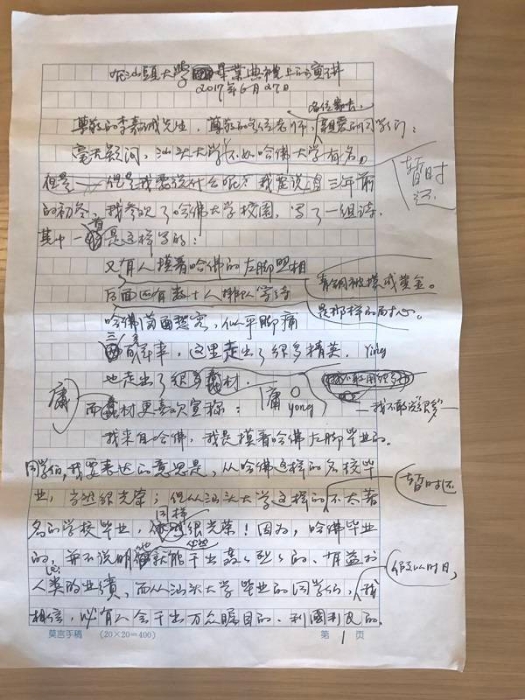 在汕头大学毕业典礼上的演讲
2017年6月27日
各位校董,
尊敬的李嘉诚先生,尊敬的各位老师,亲爱的同学们:
毫无疑问,汕头大学不如哈佛大学有名,
暂时还
但是 但是我要说什么呢?我是说,三年前
的初冬,我参观了哈佛大学校园,写了一组诗,
其中一首是这样写的:
又有人摸着哈佛的左脚照相
青铜被摸成黄金。
后面还有数十人排队等待
是那样的耐心。
哈佛面,似乎脚痛
三百年来,这里走出了很多精英, Ying
也走出了很多材,
庸
而材更喜欢宣称:
庸 yong
我不敢说很多
我来自哈佛,我是摸着哈佛左脚毕业的。
同学们,我要表达的意思是,从哈佛这样的名校毕
业,当然很光荣;但从汕头大学这样的不太著
暂时还
名的学校毕业,同样很光荣!因为,哈佛毕业
的,并不说明就能干出轰轰烈烈的、有益于
人类的业绩,而从汕头大学毕业的同学们,我
假以时日,
相信,必有人会干出万众瞩目的、利国利民的
莫言手稿 (20×20=400) 第 1 页